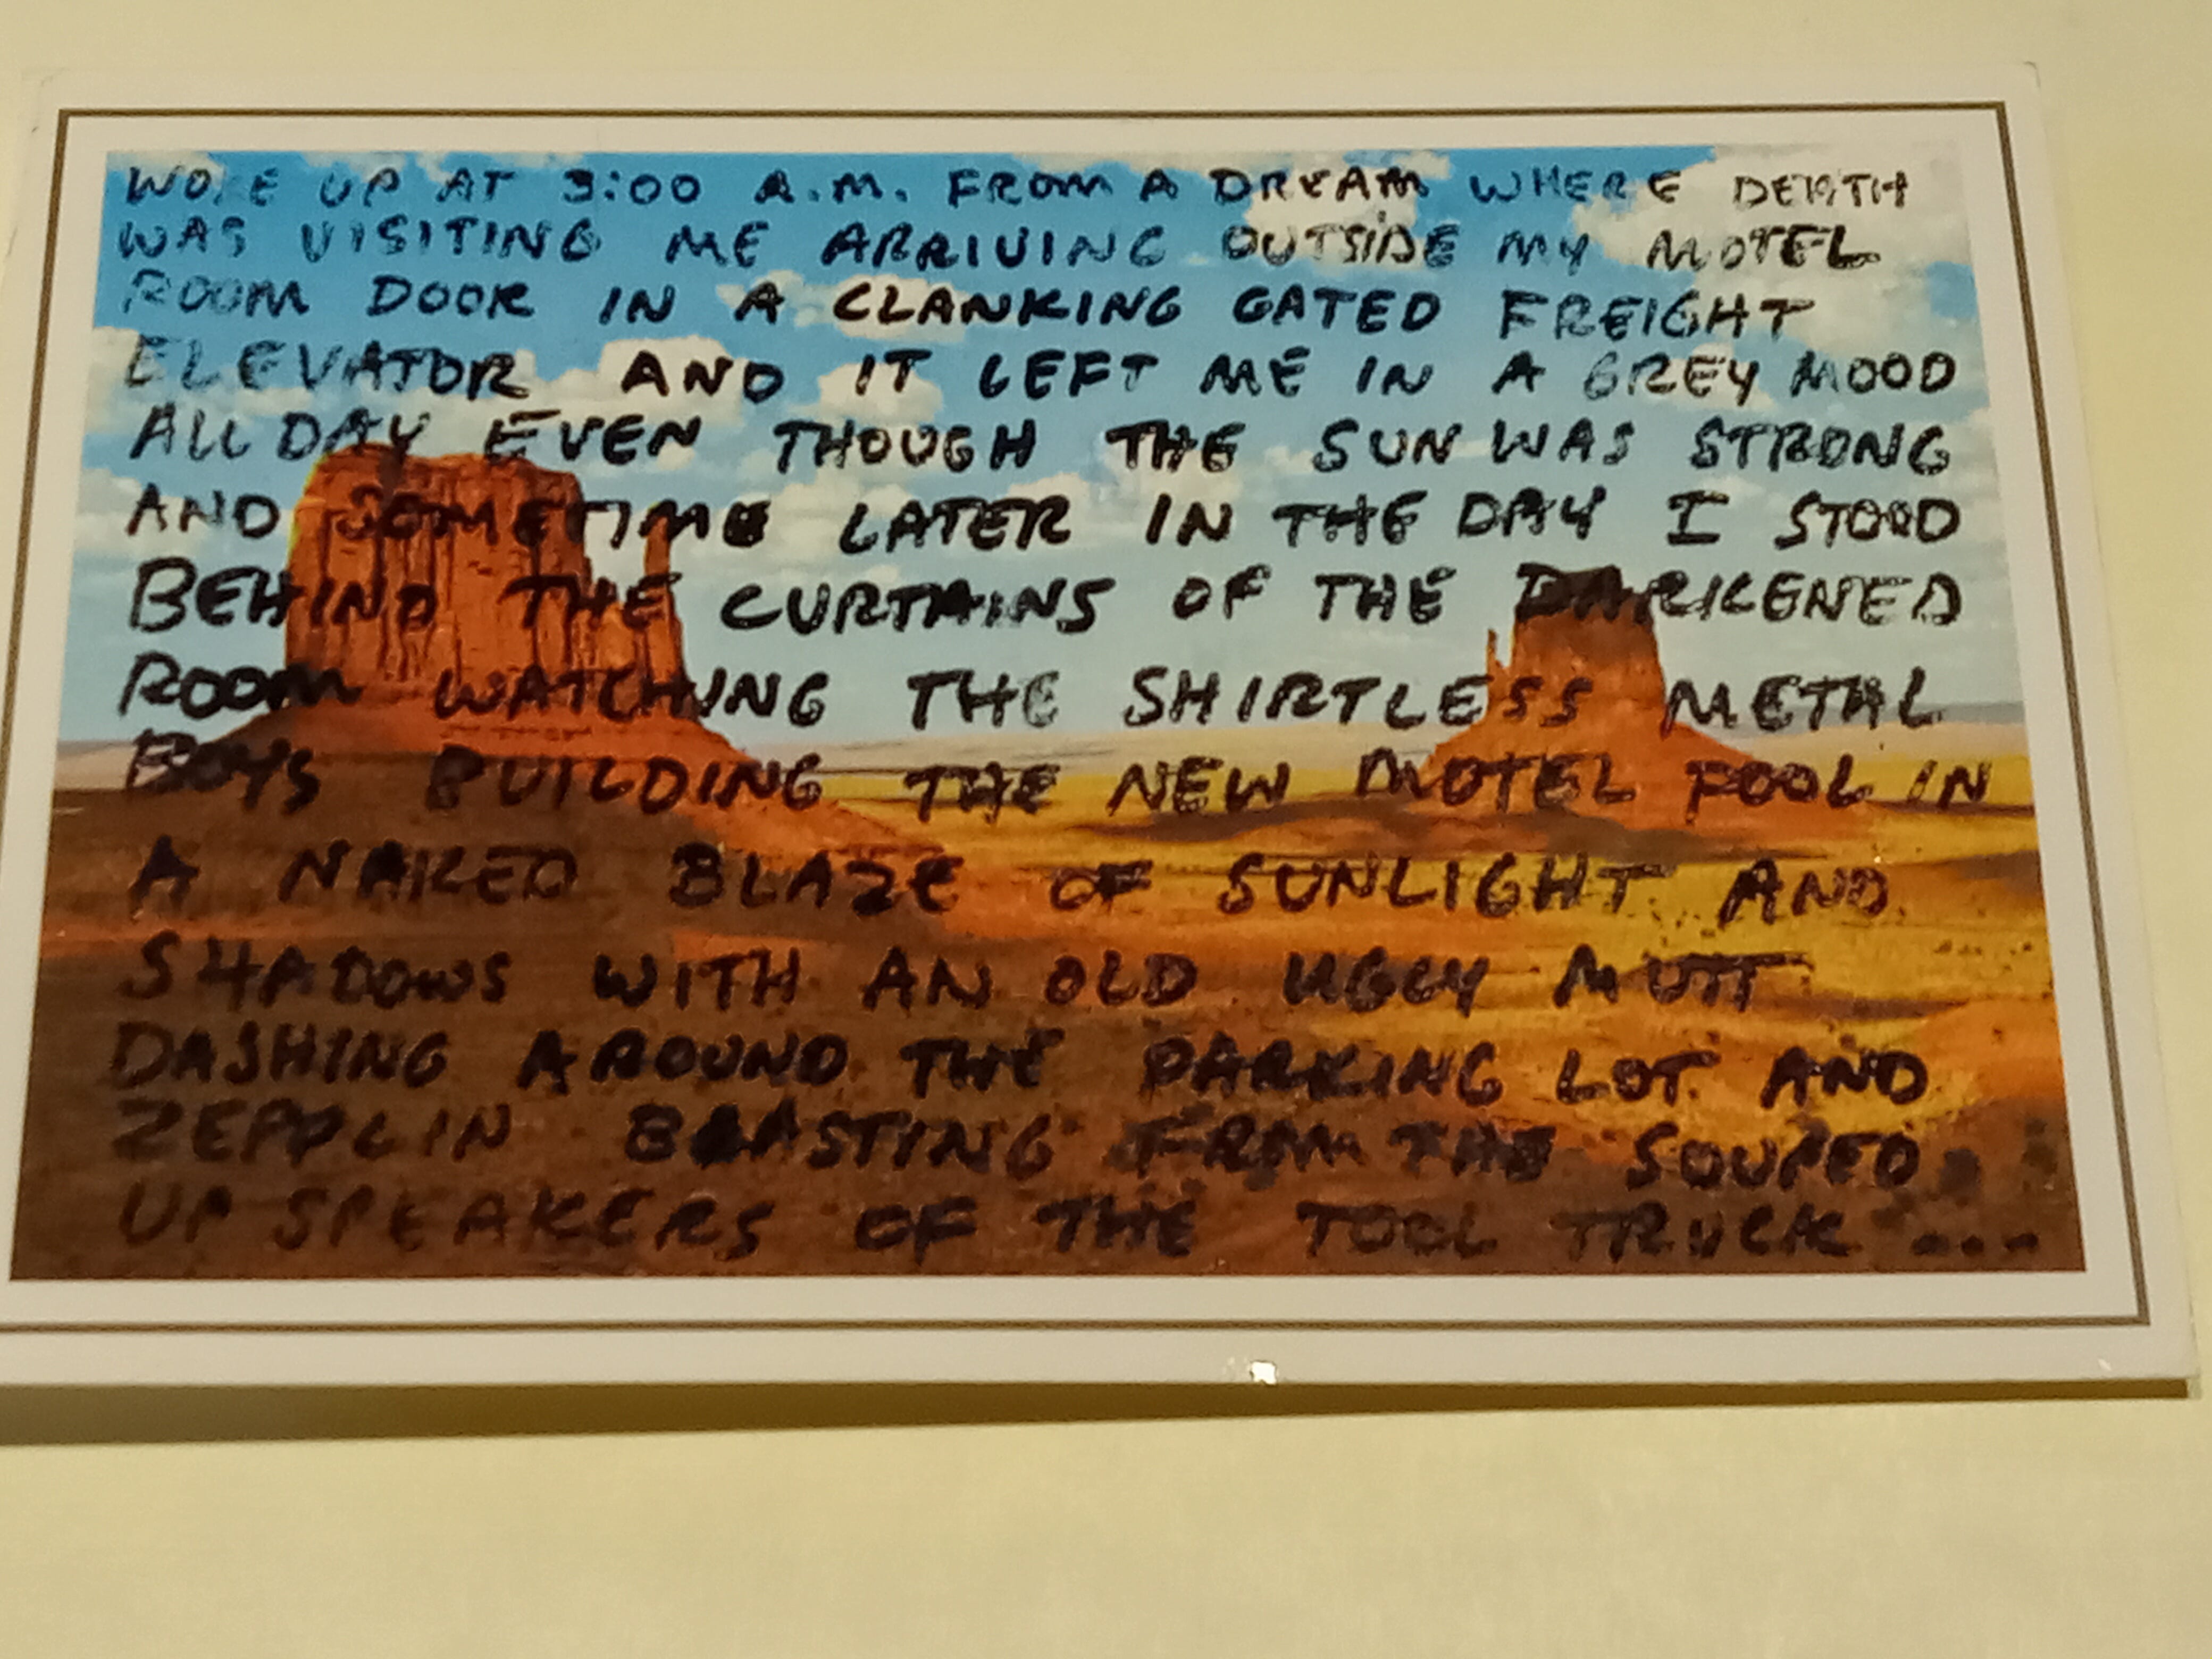 WOKE UP AT 3:00 A.M. FROM A DREAM WHERE DEATH
WAS VISITING ME ARRIVING OUTSIDE MY MOTEL
ROOM DOOR IN A CLANKING GATED FREIGHT
ELEVATOR AND IT LEFT ME IN A GREY MOOD
ALL DAY EVEN THOUGH THE SUN WAS STRONG
AND SOMETIME LATER IN THE DAY I STOOD
BEHIND THE CURTAINS OF THE DARKENED
ROOM WATCHING THE SHIRTLESS METAL
BOYS BUILDING THE NEW MOTEL POOL IN
A NAKED BLAZE OF SUNLIGHT AND
SHADOWS WITH AN OLD UGLY MUTT
DASHING AROUND THE PARKING LOT AND
ZEPPLIN BLASTING FROM THE SOUPED
UP SPEAKERS OF THE TOOL TRUCK ...